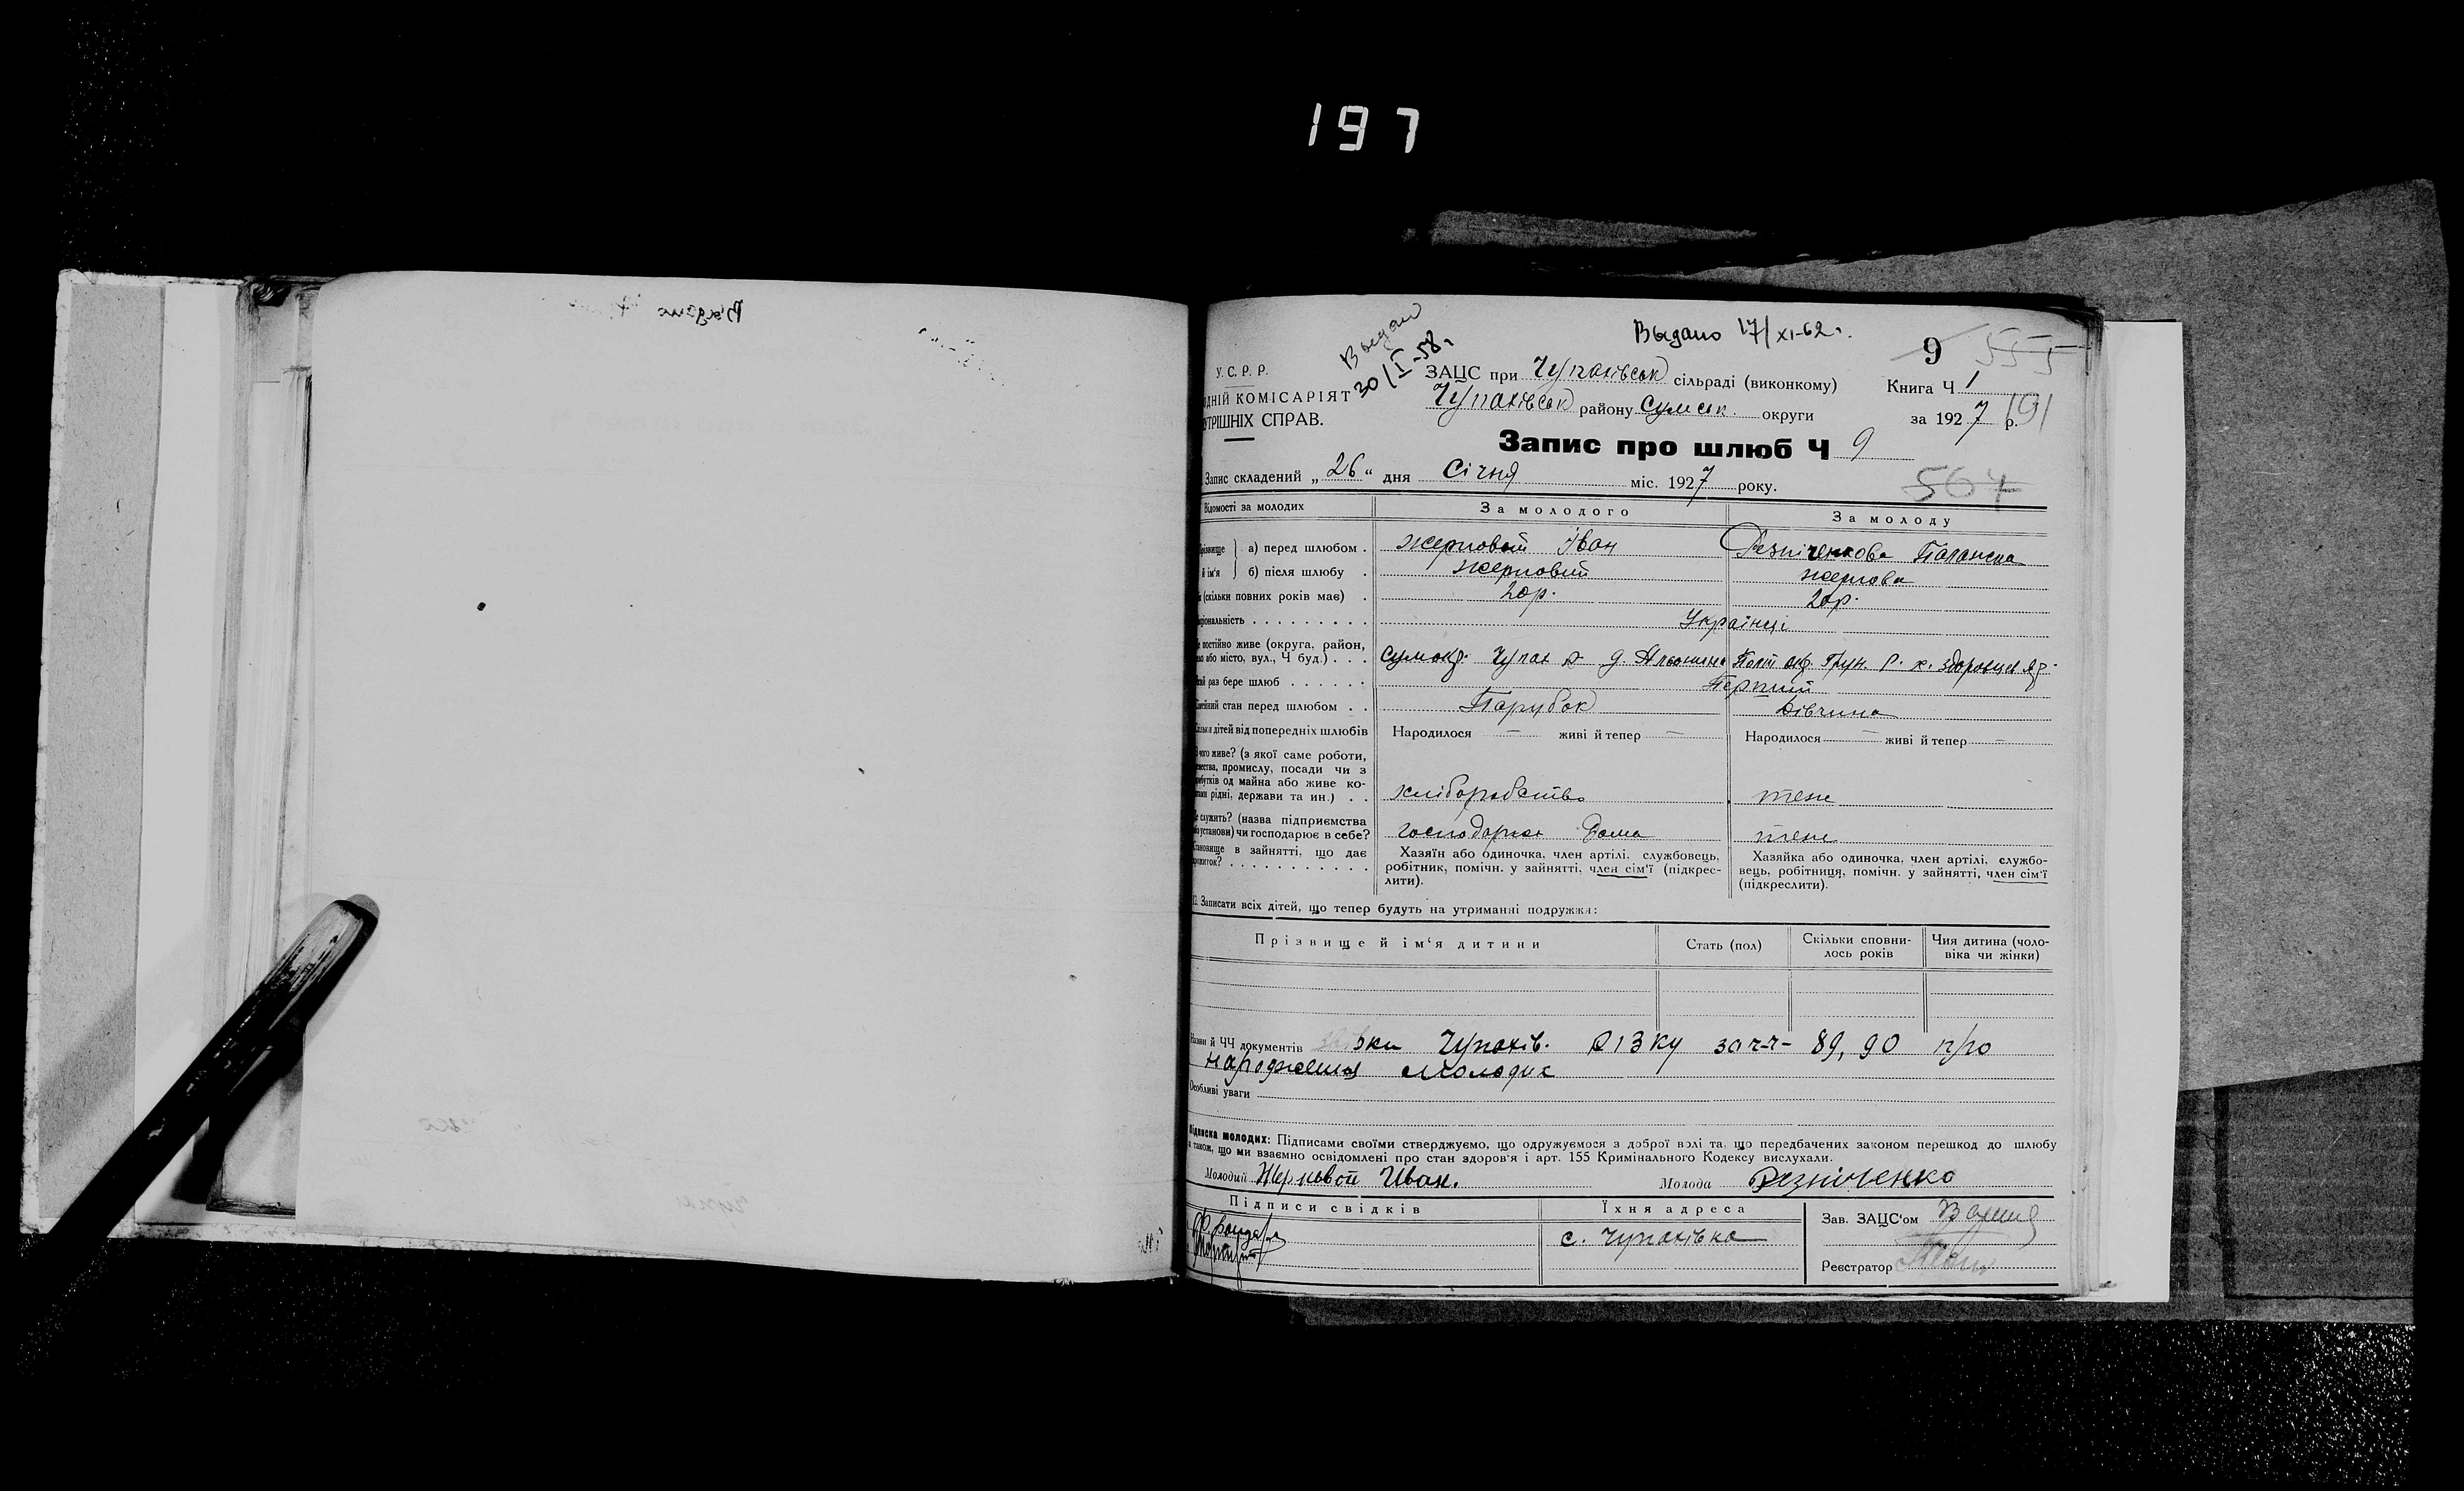 197
Выдано 17/XI-62.
Выдан
30/I-58г
9
555
У. С. Р. Р.
ЗАЦС при Чупахівськ сільраді (виконкому)
Книга Ч 1
ДНІЙ КОМІСАРІЯТ
Чупахівськ району Сумськ. округи
за 1927 р.
191
УТРІШНІХ СПРАВ.
Запис про шлюб Ч 9
Запис складений „26“ дня Січня міс. 1927 року.
564
Відомості за молодих
За молодого
За молоду
а) перед шлюбом . Жерновой Іван
Резніченкова Параска
й ім'я б) після шлюбу . Жерновий
Жернова
(скільки повних років має) . 20р.
20р.
ціональність . . . . . . . . . Українці
постійно живе (округа, район,
або місто, вул., Ч буд.) . . . Сум окр. Чупах р.
Полт окр. Грун. р. х.
раз бере шлюб . . . . . . Перший
стан перед шлюбом . . Парубок
Дівчина
дітей від попередніх шлюбів Народилося — живі й тепер —
Народилося — живі й тепер —
чого живе? (з якої саме роботи,
промислу, посади чи з
од майна або живе ко-
рідні, держави та ин.) . . хліборобство
теж
служить? (назва підприємства
установи) чи господарює в себе? господарює Дома
теж
в зайнятті, що дає
. . . . . . . . . . .
Хазяїн або одиночка, член артілі, службовець,
робітник, помічн. у зайнятті, член сім'ї (підкрес-
лити).
Хазяйка або одиночка, член артілі, службо-
вець, робітниця, помічн. у зайнятті, член сім'ї
(підкреслити).
Записати всіх дітей, що тепер будуть на утриманні подружжя:
Прізвище й ім'я дитини
Стать (пол)
Скільки сповни-
лось років
Чия дитина (чоло-
віка чи жінки)
Назви й ЧЧ документів Чупахів. РІЗКу за ч-ч- 89, 90 про
народження молодих
Особливі уваги
Підписка молодих: Підписами своїми стверджуємо, що одружуємося з доброї волі та, що передбачених законом перешкод до шлюбу
а також, що ми взаємно освідомлені про стан здоров'я і арт. 155 Кримінального Кодексу вислухали.
Молодий Жерновой Иван.
Молода Резніченко
Підписи свідків
Їхня адреса
Зав. ЗАЦС'ом
с. Чупахівка
Реєстратор